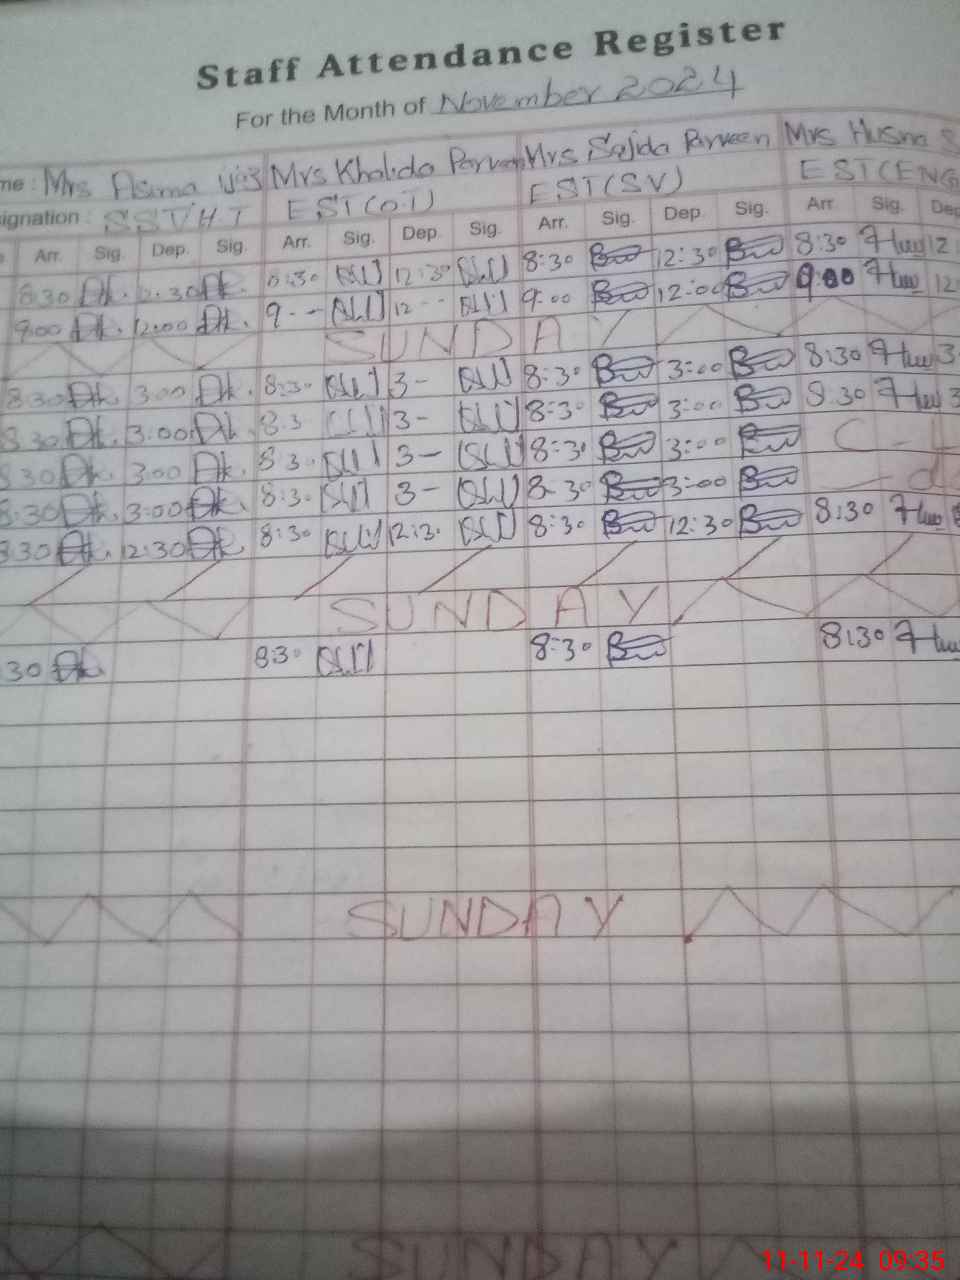 Staff Attendance Register
For the Month of November 2024
me: Mrs Asima Mrs Khalida Parveen Mrs Sajida Parveen Mrs Husna S
signation: SST/H.T EST(O.T) EST(SV) EST(ENG
Arr. Sig. Dep. Sig. Arr. Sig. Dep. Sig. Arr. Sig. Dep. Sig. Arr. Sig. Dep
8:30 12:30 8:30 12:30 8:30 12:30 8:30 12
9:00 12:00 9-- 12-- 9:00 12:00 9:00 12
SUNDAY
8:30 3:00 8:30 3- 8:30 3:00 8:30 3
8:30 3:00 8:3 3- 8:30 3:00 8:30 3
8:30 3:00 8:30 3- 8:30 3:00 C-L
8:30 3:00 8:30 3- 8:30 3:00
8:30 12:30 8:30 12:30 8:30 12:30 8:30
SUNDAY
30 8:30 8:30 8:30
SUNDAY
SUNDAY
11-11-24 09:35